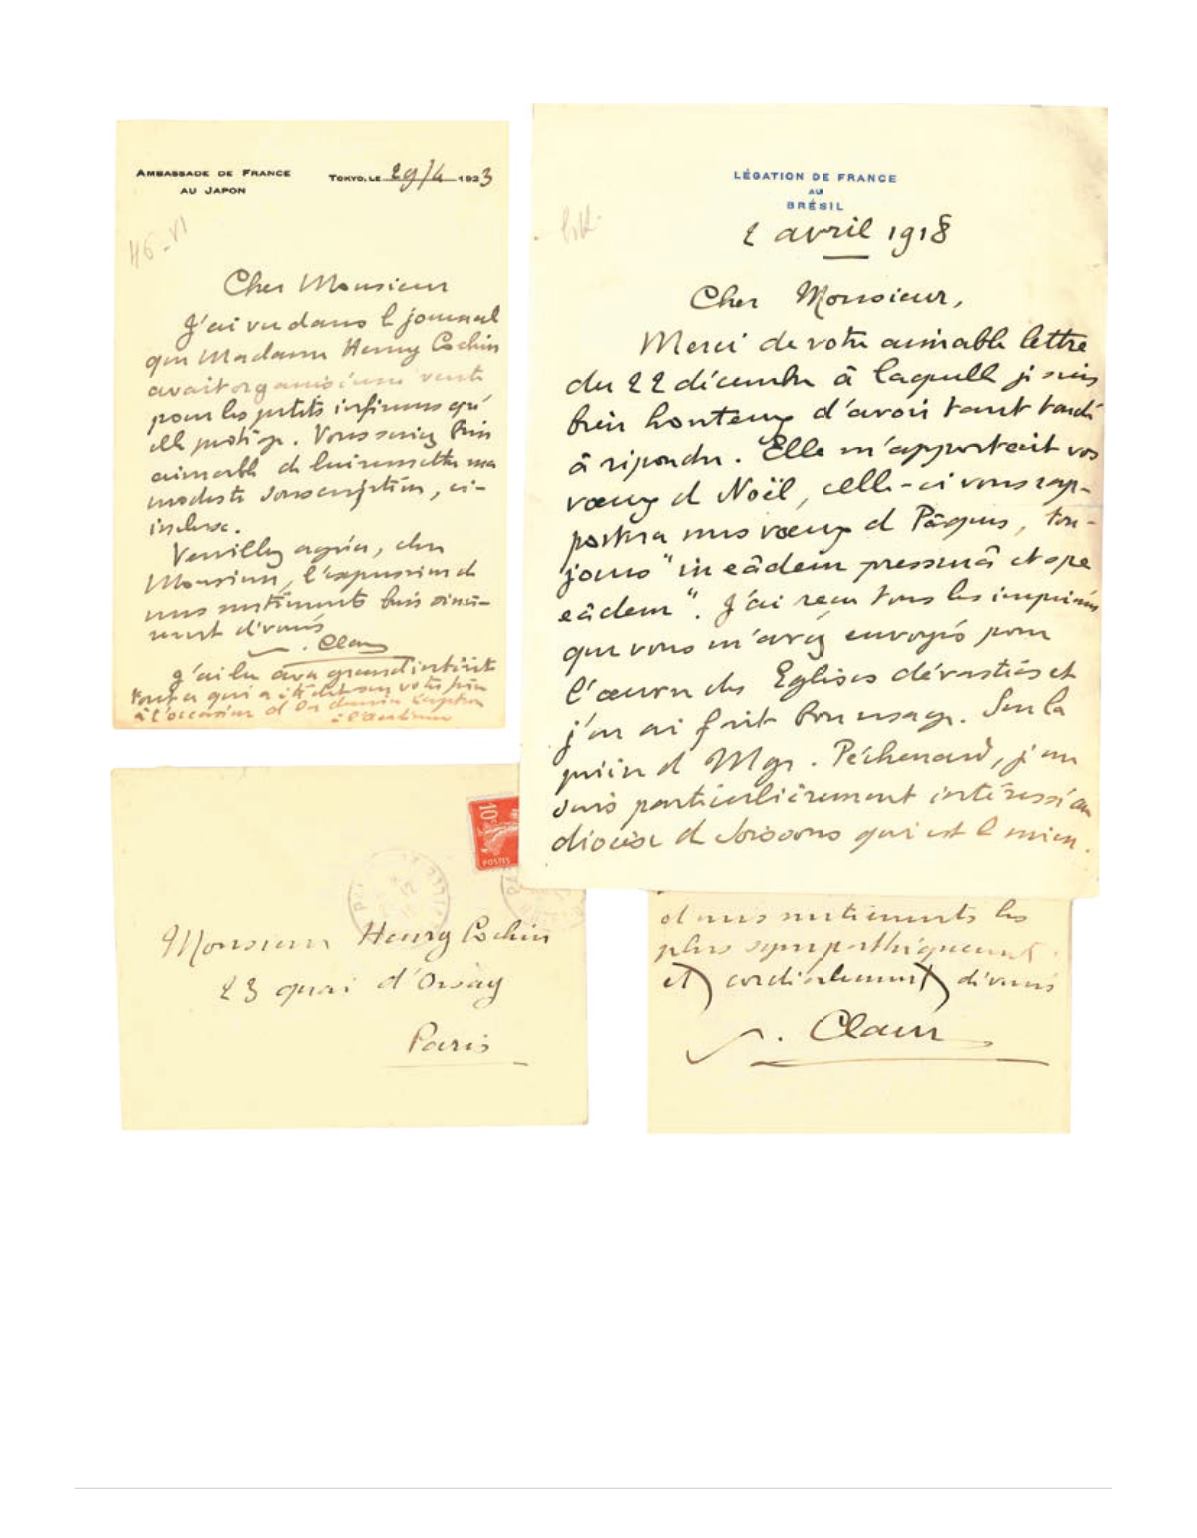 AMBASSADE DE FRANCE
AU JAPON
TOKYO, LE 29/4 1923
46-VI
Cher Monsieur
J'ai vu dans le journal
que Madame Henry Cochin
avait organisé une vente
pour les petits infirmes qu'
elle protège. Vous seriez bien
aimable de lui remettre ma
modeste souscription, ci-
incluse.
Veuillez agréer, cher
Monsieur, l'expression de
mes sentiments bien sincè-
rement dévoués
Claudel
J'ai lu avec grand intérêt
tout ce qui a été dit sur votre père
à l'occasion de
LÉGATION DE FRANCE
AU
BRÉSIL
2 avril 1918
Cher Monsieur,
Merci de votre aimable lettre
du 22 décembre à laquelle je suis
bien honteux d'avoir tant tardé
à répondre. Elle m'apportait vos
vœux de Noël, celle-ci vous rap-
portera mes vœux de Pâques, tou-
jours "in eâdem pressurâ et spe
eâdem". J'ai reçu tous les imprimés
que vous m'avez envoyés pour
l'œuvre des Eglises dévastées et
j'en ai fait bon usage. Sur la
prière de Mgr. Péchenard, je me
suis particulièrement intéressé au
diocèse de Soissons qui est le mien.
10c
POSTES
Monsieur Henry Cochin
23 quai d'Orsay
Paris
de mes sentiments les
plus sympathiquement
et) cordialement) dévoués
Claudel